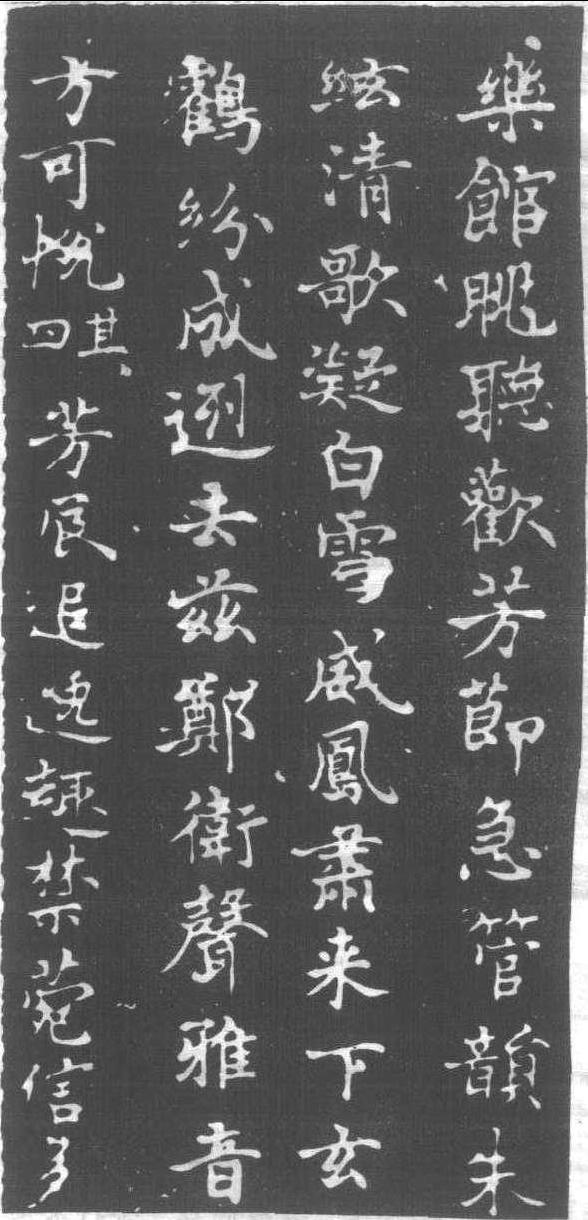 樂館眺聽歡芳節急管韻朱
絃清歌凝白雪威鳳肅来下玄
鶴紛成迾去茲鄭衛聲雅音
方可悦其四芳辰追逸趣禁菀信多